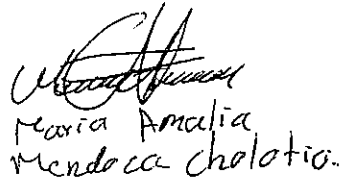 Maria Amalia
Mendoca Cholotio.